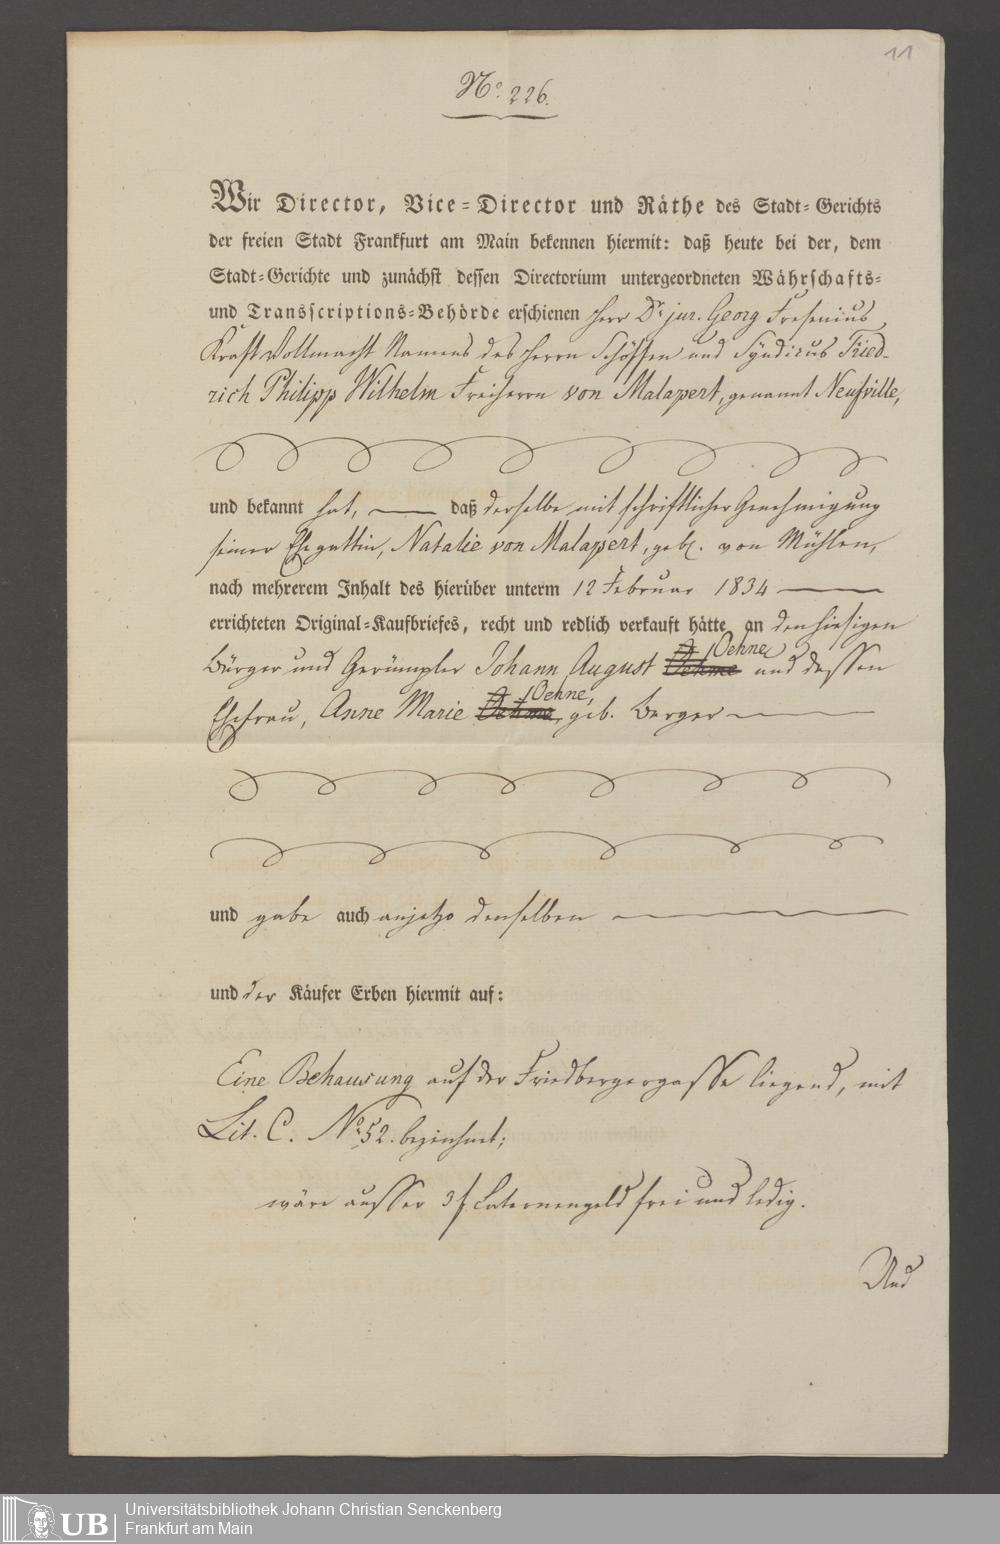 11
No. 226.
Wir Director, Vice-Director und Räthe des Stadt-Gerichts
der freien Stadt Frankfurt am Main bekennen hiermit: daß heute bei der, dem
Stadt-Gerichte und zunächst dessen Directorium untergeordneten Währschafts-
und Transscriptions-Behörde erschienen Herr Dr jur. Georg Fresenius
Kraft Vollmacht Namens des Herrn Schöffen und Syndicus Fried-
rich Philipp Wilhelm Freiherrn von Malapert, genannt Neufville,
und bekannt hat, daß derselbe mit schriftlicher Genehmigung
seiner Ehegattin, Natalie von Malapert, geb. von Mühlen,
nach mehrerem Inhalt des hierüber unterm 12 Februar 1834
errichteten Original-Kaufbriefes, recht und redlich verkauft hätte an den hiesigen
Bürger und Gerümpler Johann August Oehme Oehne und dessen
Ehefrau, Anne Marie Oehme Oehne, geb. Berger
und gabe auch anjetzo denselben
und der Käufer Erben hiermit auf:
Eine Behausung auf der Friedbergergasse liegend, mit
Lit. C. No 52. bezeichnet;
wäre ausser 3 f Laternengeld frei und ledig.
Und
UB
Universitätsbibliothek Johann Christian Senckenberg
Frankfurt am Main